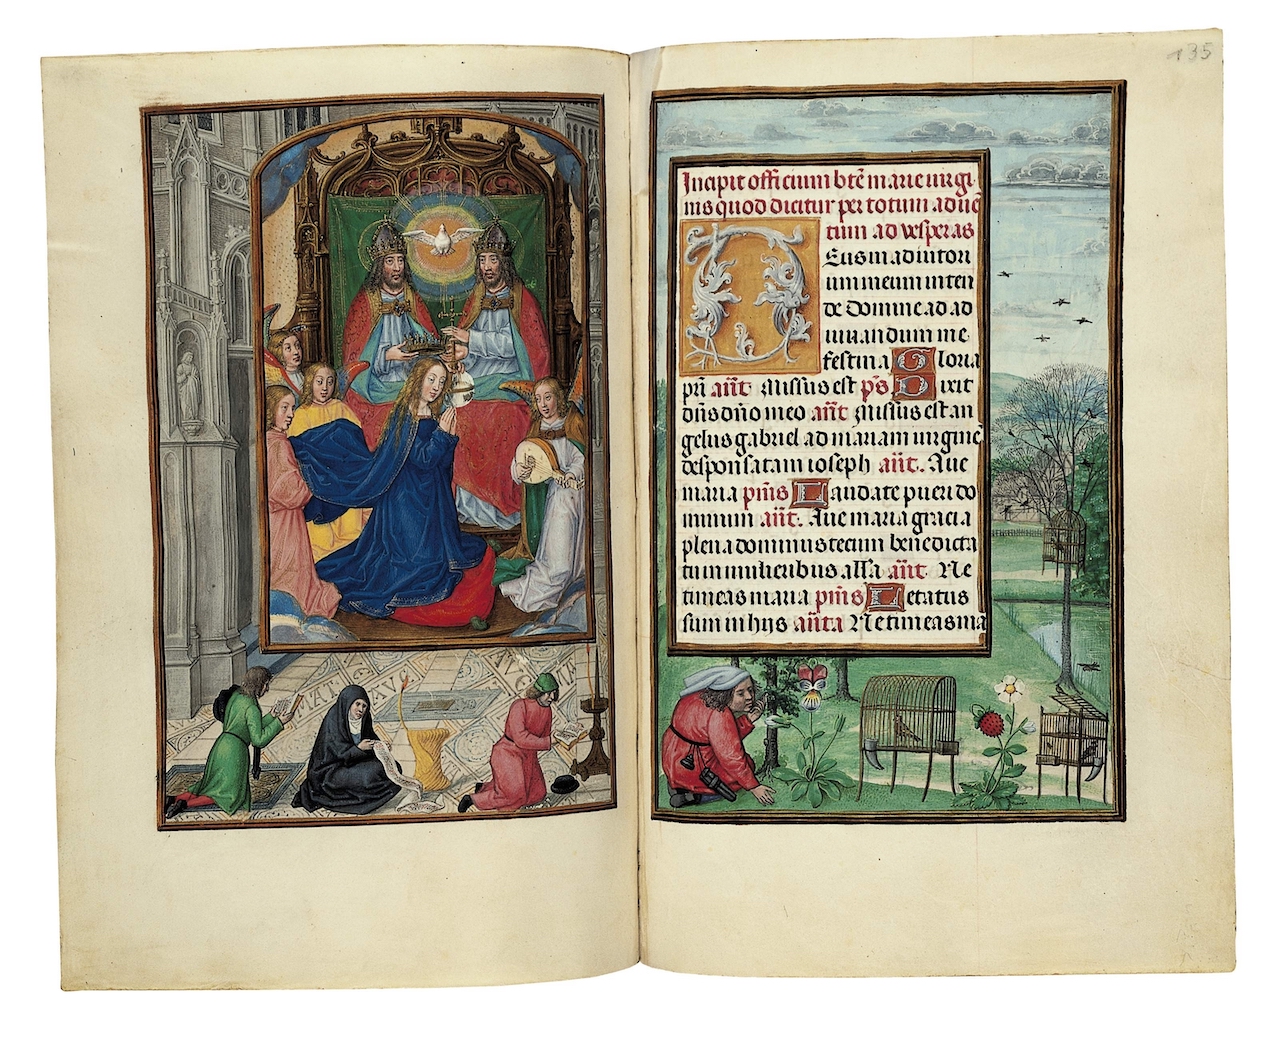 MAT
AVE
135
Incipit officium bt̄e marie uirgi
nis quod dicitur per totum aduē
tum ad vesperas
Deus in adiutori
um meum inten
de Domine ad ad
iuuandum me
festina Gloria
pr̄i an̄t Missus est ps̄ Dixit
dn̄s dn̄o meo an̄t Missus est an
gelus gabriel ad mariam uirginē
desponsatam ioseph an̄t. Aue
maria pm̄s Laudate pueri do
minum an̄t. Aue maria gracia
plena dominus tecum benedicta
tu in mulieribus alla an̄t Ne
timeas maria pm̄s Letatus
sum in hijs an̄ta Ne timeas ma